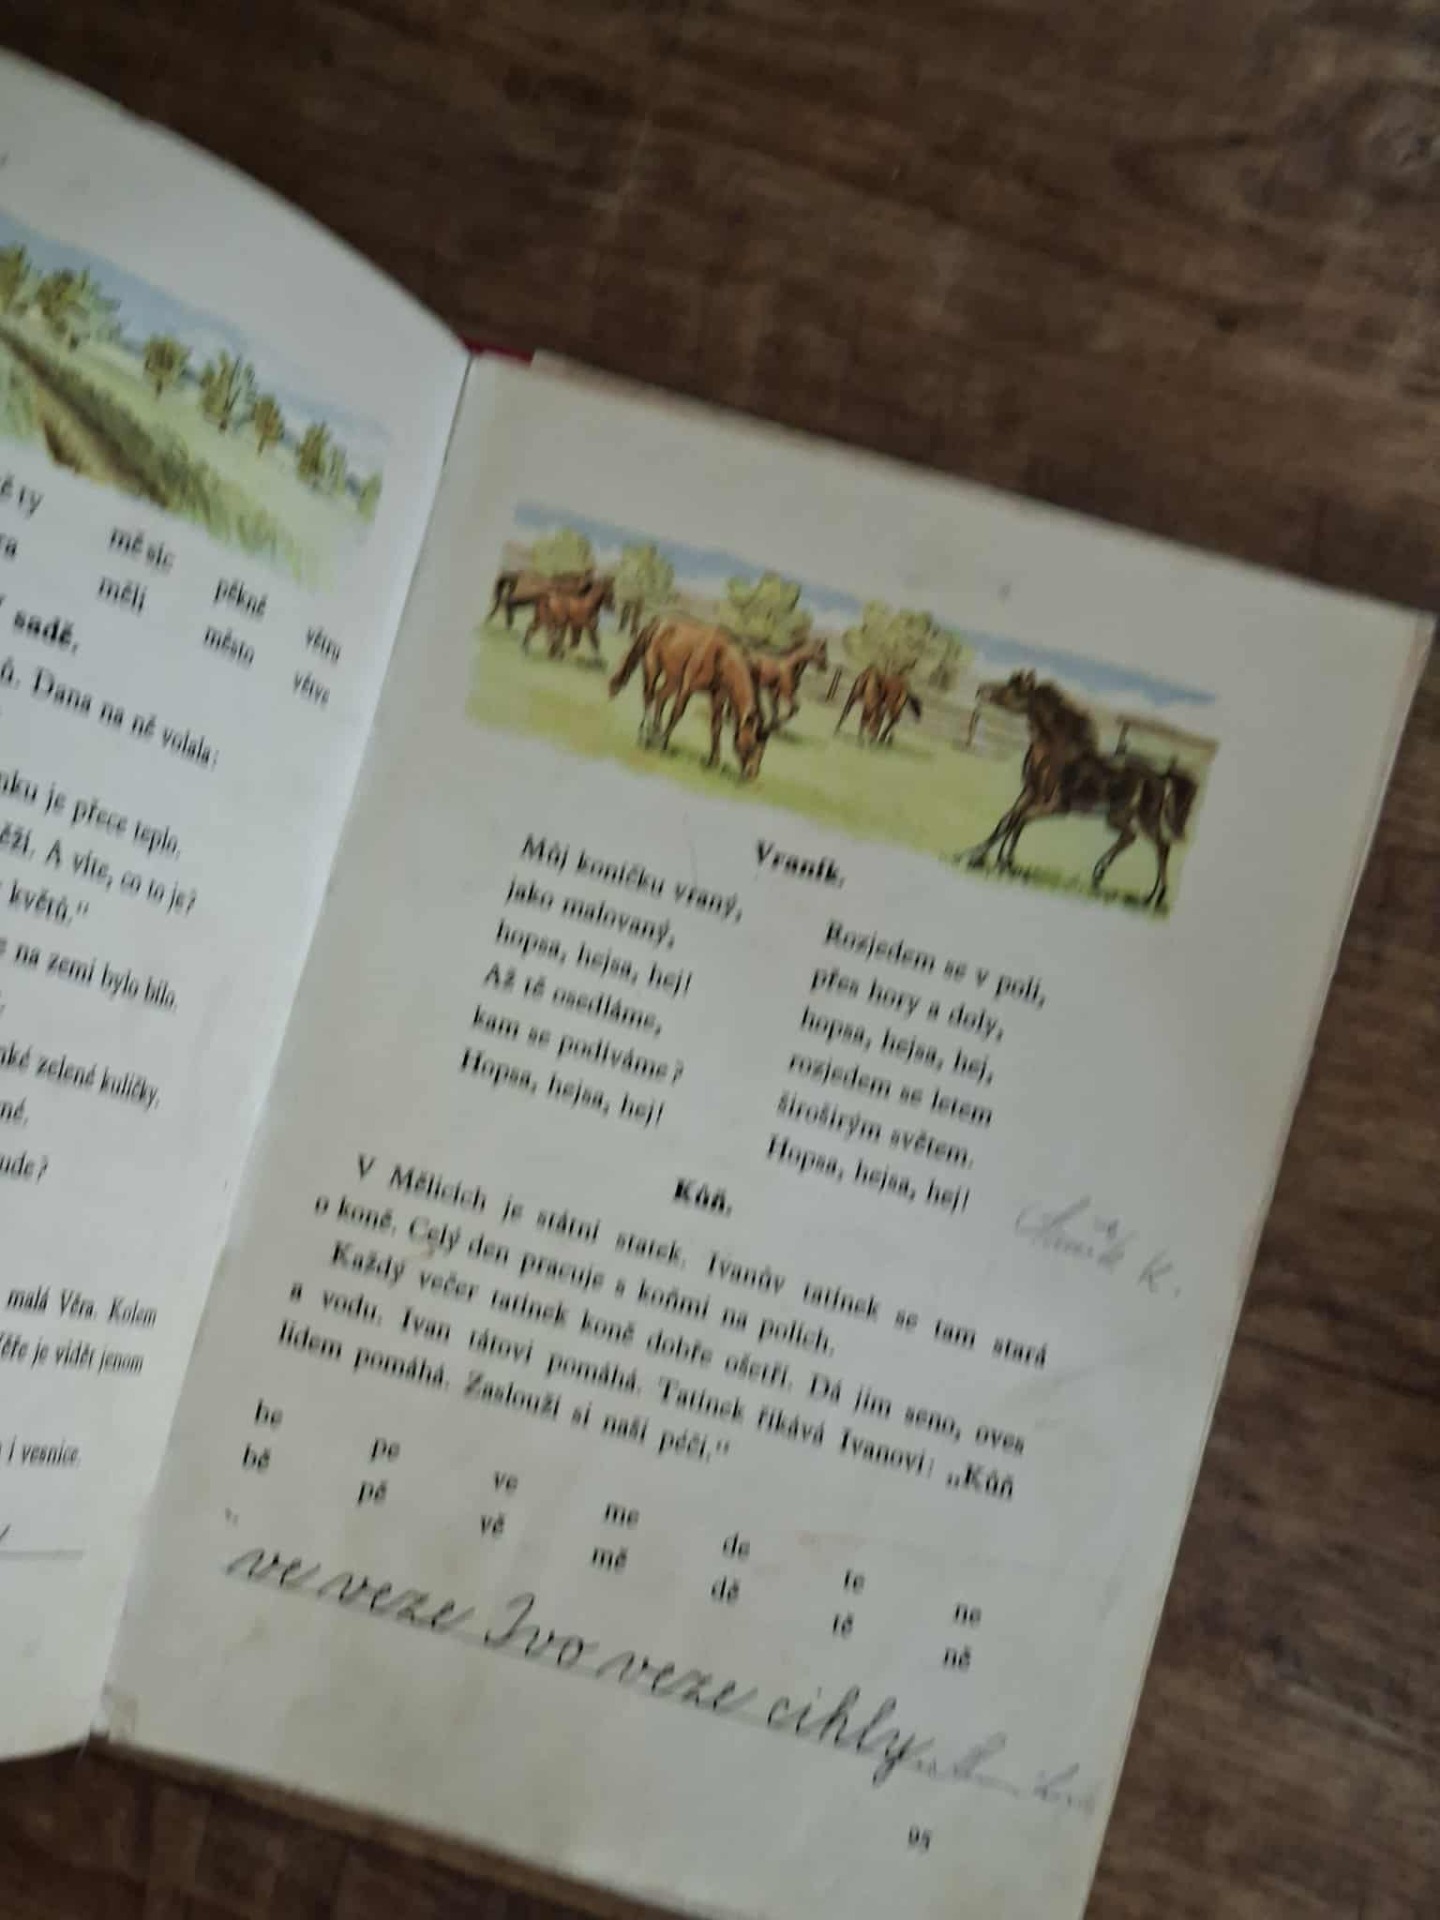 měsíc pěkné větru
měli město větve
sadě.
Dana na ně volala:
je přece teplo.
A víte, co to je?
květů."
na zemi bylo bílo.
zelené kuličky.
malá Věra. Kolem
je vidět jenom
i vesnice.
Vraník.
Můj koníčku vraný,
jako malovaný,
hopsa, hejsa, hej!
Až tě osedláme,
kam se podíváme?
Hopsa, hejsa, hej!
Rozjedem se v poli,
přes hory a doly,
hopsa, hejsa, hej,
rozjedem se letem
široširým světem.
Hopsa, hejsa, hej!
Kůň.
V Mělicích je státní statek. Ivanův tatínek se tam stará
o koně. Celý den pracuje s koňmi na polích.
Každý večer tatínek koně dobře ošetří. Dá jim seno, oves
a vodu. Ivan tátovi pomáhá. Tatínek říkává Ivanovi: „Kůň
lidem pomáhá. Zaslouží si naši péči."
be pe ve me de te ne
bě pě vě mě dě tě ně
ve veze Ivo veze cihly
95